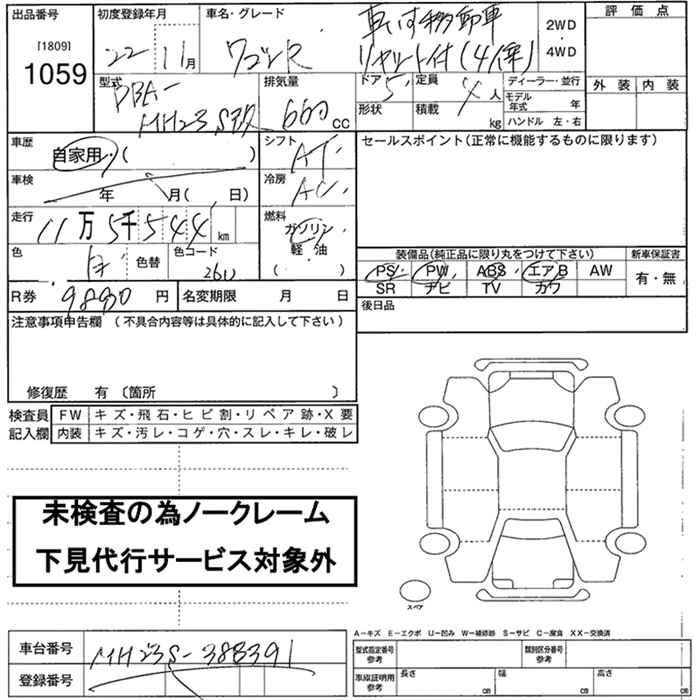 出品番号 初度登録年月 車名・グレード 車いす移動車 2WD 評価点
[1809] 22 11月 ワゴンR リヤシート付(4人乗) ・ 4WD
1059 型式 排気量 ドア 定員 ディーラー・並行 外装 内装
DBA- 5 4人 モデル年式 年
MH23S 660cc 形状 積載 kg ハンドル 左・右
車歴 自家用・( ) シフト AT セールスポイント(正常に機能するものに限ります)
車検 年 月( 日) 冷房 AC
走行 11万5千544km 燃料 ガソリン
軽・油
( )
色 白 色替 色コード 26U 装備品(純正品に限り丸をつけて下さい) 新車保証書
PS PW ABS エアB AW 有・無
SR ナビ TV カワ
R券 9830円 名変期限 月 日 後日品
注意事項申告欄(不具合内容等は具体的に記入して下さい)
修復歴 有〔箇所 〕
検査員 FW キズ・飛石・ヒビ割・リペア跡・X要
記入欄 内装 キズ・汚レ・コゲ・穴・スレ・キレ・破レ
未検査の為ノークレーム
下見代行サービス対象外
スペア
A-キズ E-エクボ U-凹み W-補修跡 S-サビ C-腐食 XX-交換済
車台番号 MH23S-388391 型式指定番号 参考 類別区分番号 参考
登録番号 車庫証明用 参考 長さ cm 幅 cm 高さ cm